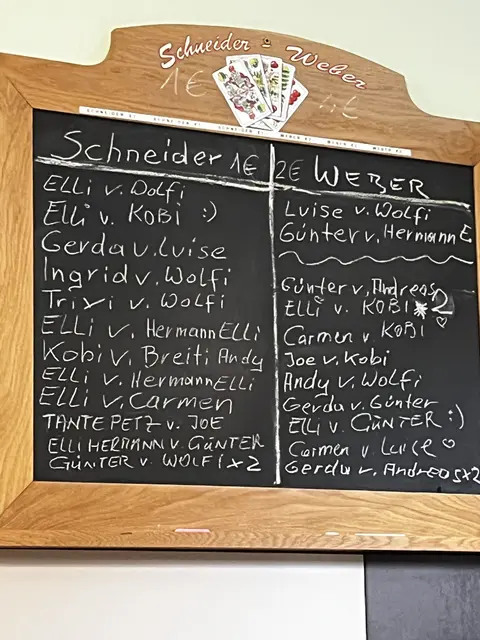 Schneider - Weber
1€
SCHNEIDER €1 SCHNEIDER €1 SCHNEIDER €1 WEBER €2 WEBER €2 WEBER €2
Schneider 1€
Elli v. Dolfi
Elli v. KOBI :)
Gerda v. Luise
Ingrid v. Wolfi
Trixi v. Wolfi
ELLI v. Hermann ELLI
Kobi v. Breiti Andy
ELLi v. Hermann ELLI
Elli v. Carmen
TANTE PETZ v. JOE
ELLI HERMANN v. GÜNTER
GÜNTER v. WOLFI x2
2€ WEBER
Luise v. Wolfi
Günter v. Hermann E
Günter v. Andreas
ELLi v. KOBI * 2
Carmen v. KOBI ♡
Joe v. Kobi
Andy v. Wolfi
Gerda v. Günter
Elli v. GÜNTER :)
Carmen v. Luise ♡
Gerda v. Andreas x2